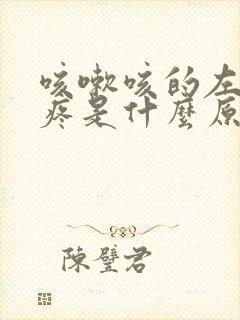 咳嗽咳的左
疼是什麼原
陳璧君